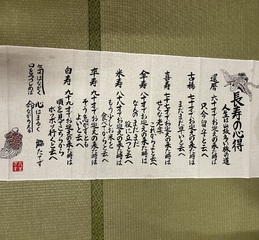 長寿の心得
人生は山坂多い旅の道
還暦 六十才でお迎えの来た時は
只今留守と云へ
古稀 七十才でお迎えの来た時は
まだまだ早いと云へ
喜寿 七十七才でお迎えの来た時は
せくな老楽
これからよと云へ
傘寿 八十才でお迎えの来た時は
なんのまだまだ
役に立つと云へ
米寿 八十八才でお迎えの来た時は
もう少しお米を
食べてからと云へ
卒寿 九十才でお迎えの来た時は
そう急がずとも
よいと云へ
白寿 九十九才でお迎えの来た時は
頃を見てこちらから
ボツボツ行くと云へ
気はながく
心はまるく
腹たてず
口をつつしめば
命ながらえる